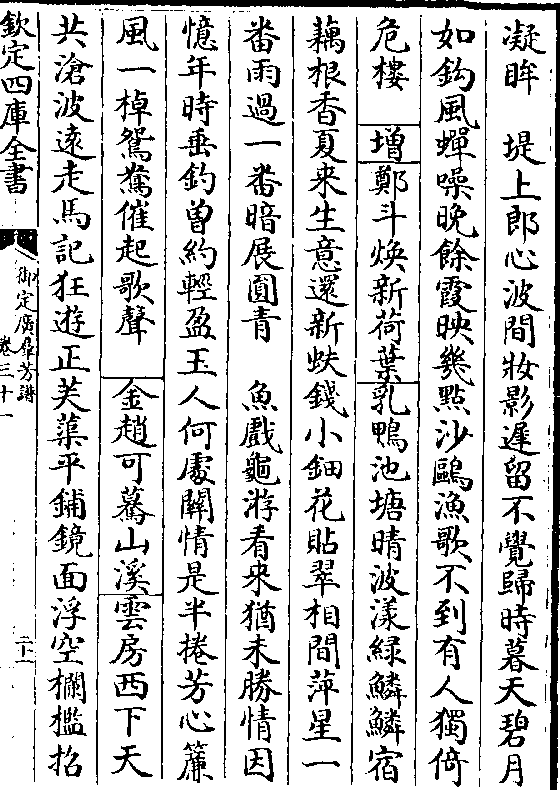 凝眸　堤上郎心波間妝影遲留不覺歸時暮天碧月
如鈎風蟬噪晚餘霞映幾點沙鷗漁歌不到有人獨倚
危樓　增鄭斗煥新荷葉乳鴨池塘晴波漾緑鱗鱗宿
藕根香夏来生意還新蚨錢小鈿花貼翠相間萍星一
番雨過一番暗展圓青　魚戲龜游看來猶未勝情因
憶年時垂釣曽約輕盈玉人何處關情是半捲芳心簾
風一棹鴛鴦催起歌聲　金趙可驀山溪雲房西下天
共滄波遠走馬記狂遊正芙蕖平鋪鏡面浮空欄檻招
欽定四庫全書
御定廣羣芳譜
卷三十一
二十一